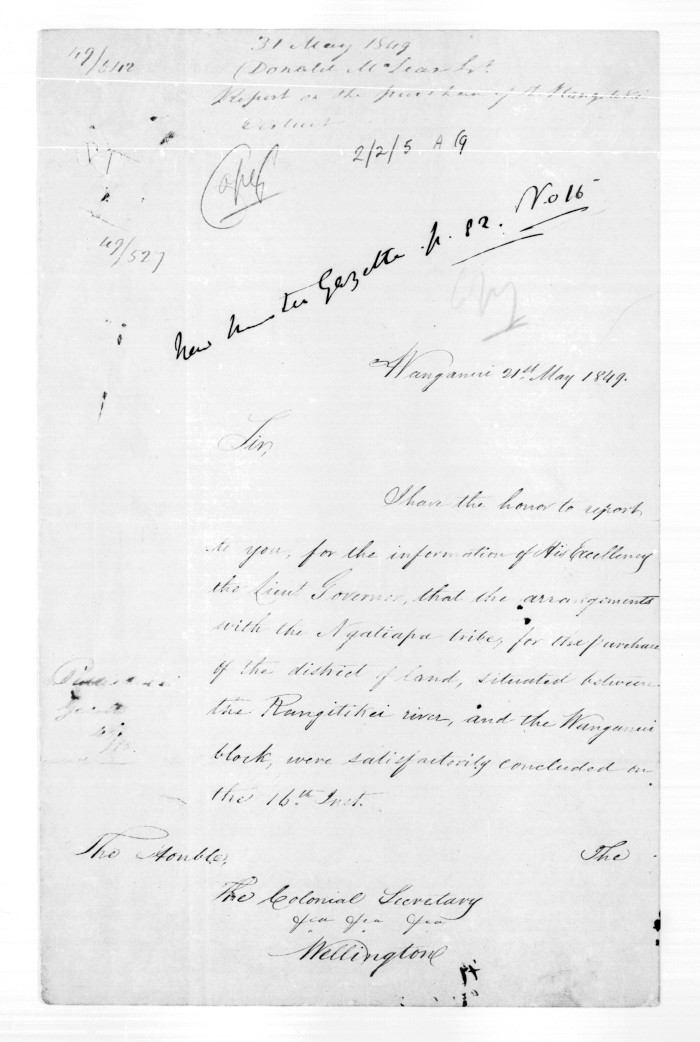 49/542
31 May 1849
(Donald McLean Esq.
Report on the purchase of the Rangitikei
District
2/2/5 A 9
Copy
49/527
New Munster Gazette p. 82. No 16
Copy
Wanganui 21st May 1849.
Sir,
I have the honor to report
to you, for the information of His Excellency
the Lieut Governor, that the arrangements
with the Ngatiapa tribe, for the purchase
of the district of land, situated between
the Rangitikei river, and the Wanganui
block, were satisfactorily concluded on
the 16th Inst.
The Honble,
The
The Colonial Secretary
&ca &ca &ca
Wellington